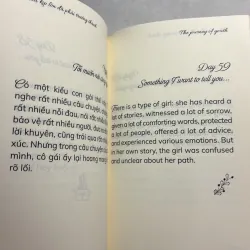 Tôi muốn
Có một kiểu con gái
nghe rất nhiều câu chuyện,
rất nhiều nỗi đau, nói rất
bảo vệ rất nhiều người,
lời khuyên, cũng trải qua
xúc. Nhưng trong câu chuyện
mình, cô gái ấy lại hoang
rõ lối.
The journey of
Day 59
Something I want to tell you...
There is a type of girl: she has heard a
lot of stories, witnessed a lot of sorrow,
given a lot of comforting words, protected
a lot of people, offered a lot of advice,
and experienced various emotions. But
in her own story, the girl was confused
and unclear about her path.